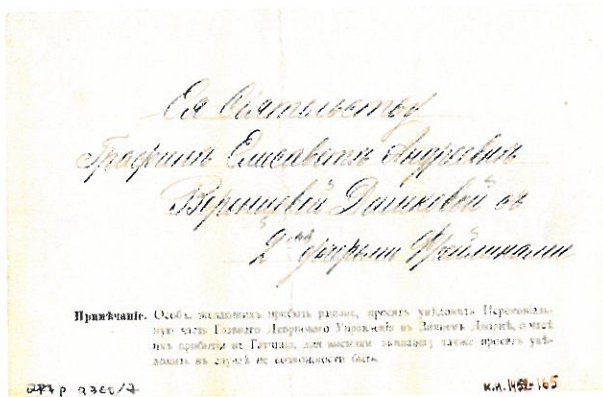 Ея Сіятельству
Графинѣ Елисаветѣ Андреевнѣ
Воронцовой Дашковой съ
2мя дочерьми Фрейлинами
Примѣчаніе. Особы, желающія прибыть ранѣе, просятъ увѣдомить Церемоніаль-
ную часть Главнаго Дворцоваго Управленія въ Зимнемъ Дворцѣ, о часѣ
ихъ прибытія въ Гатчино, для высылки экипажа; также просятъ увѣ-
домить въ случаѣ не возможности быть.
к.п. 1452-165